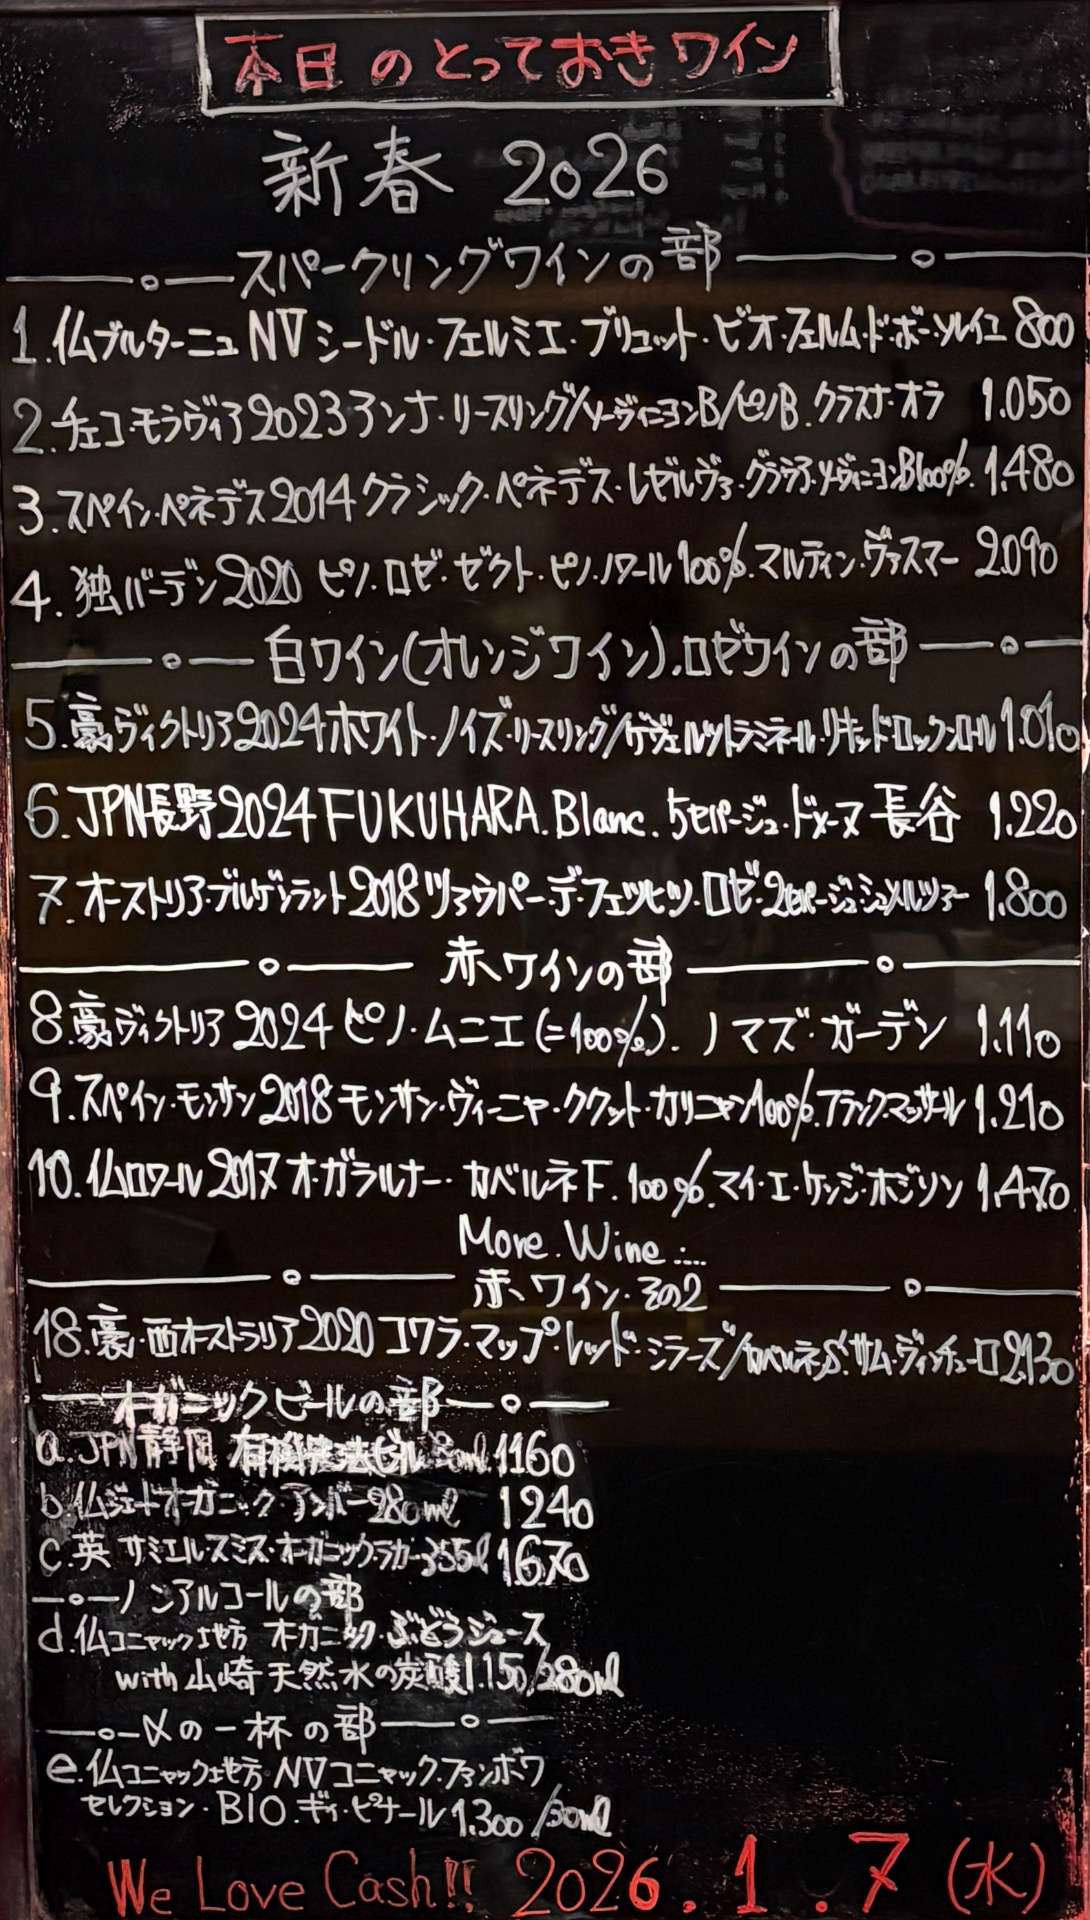 本日のとっておきワイン
新春 2026
スパークリングワインの部
1. 仏ブルターニュ NV シードル・フェルミエ・ブリュット・ビオ・フェルム・ド・ボー・ソレイユ 800
2. チェコ・モラヴィア 2023 アンナ・リースリング/ソーヴィニヨンB/ピノB. クラスナ・オラ 1.050
3. スペイン・ペネデス 2014 クラシック・ペネデス・レゼルヴァ・グラヴァ・ソーヴィニヨンB100%. 1.480
4. 独バーデン 2020 ピノ・ロゼ・ゼクト・ピノ・ノワール 100%. マルティン・ヴァスマー 2.090
白ワイン(オレンジワイン).ロゼワインの部
5. 豪ヴィクトリア 2024 ホワイト・ノイズ・リースリング/ゲヴェルツトラミネール・リキッド・ロックンロール 1.010
6. JPN長野 2024 FUKUHARA. Blanc. 5セパージュ・ドメーヌ 長谷 1.220
7. オーストリア・ブルゲンラント 2018 ツァウバー・デ・フェツヒツ・ロゼ・2セパージュ・シュメルツァー 1.800
赤ワインの部
8. 豪ヴィクトリア 2024 ピノ・ムニエ(=100%). ノマズ・ガーデン 1.110
9. スペイン・モンサン 2018 モンサン・ヴィーニャ・ククット・カリニャン100%. ブラック・マッサール 1.210
10. 仏ロワール 2017 オ・ガラルナー・カベルネF. 100%. マイ・エ・ケンジ・ホジソン 1.470
More. Wine....
赤ワイン・その2
18. 豪・西オーストラリア 2020 コワラ・マップ・レッド・シラーズ/カベルネS. サム・ヴィンチューロ 2.130
オーガニックビールの部
a. JPN静岡 有機農法ビール ml 1160
b. 仏ジェードオーガニック・アンバー 280ml 1240
c. 英 サミエル・スミス・オーガニック・ラガー 355ml 1670
ノンアルコールの部
d. 仏コニャック地方 オーガニック・ぶどうジュース
with 山崎 天然水の炭酸 1.150/280ml
〆の一杯の部
e. 仏コニャック地方 NVコニャック・ファンボワ
セレクション・BIO. ギィ・ピナール 1.300 /30ml
We Love Cash!! 2026. 1. 7 (水)